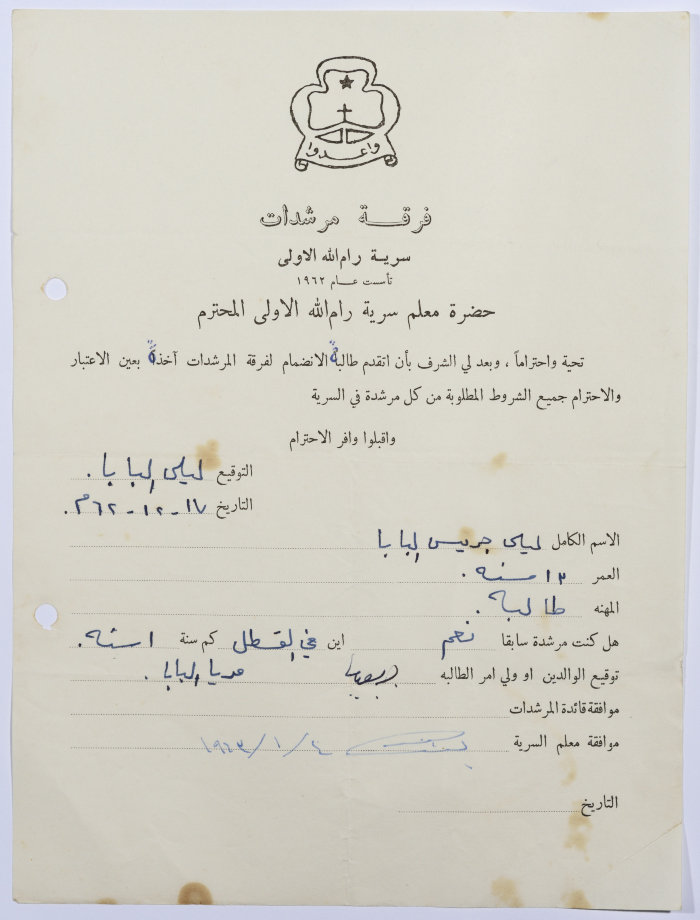 واعدوا
فرقة مرشدات
سرية رام الله الاولى
تأسست عام ١٩٦٢
حضرة معلم سرية رام الله الاولى المحترم
تحية واحتراماً ، وبعد لي الشرف بأن اتقدم طالبةً الانضمام لفرقة المرشدات آخذةً بعين الاعتبار
والاحترام جميع الشروط المطلوبة من كل مرشدة في السرية
واقبلوا وافر الاحترام
التوقيع ليلى البابا .
التاريخ ١٧ - ١٢ - ٦٢م .
الاسم الكامل ليلى جريس البابا
العمر ١٢ سنه .
المهنه طالبة .
هل كنت مرشدة سابقا نعم اين في القسطل كم سنة ١ سنه .
توقيع الوالدين او ولي امر الطالبه البابا .
موافقة قائدة المرشدات
موافقة معلم السرية ٤ / ١ / ١٩٦٣
التاريخ